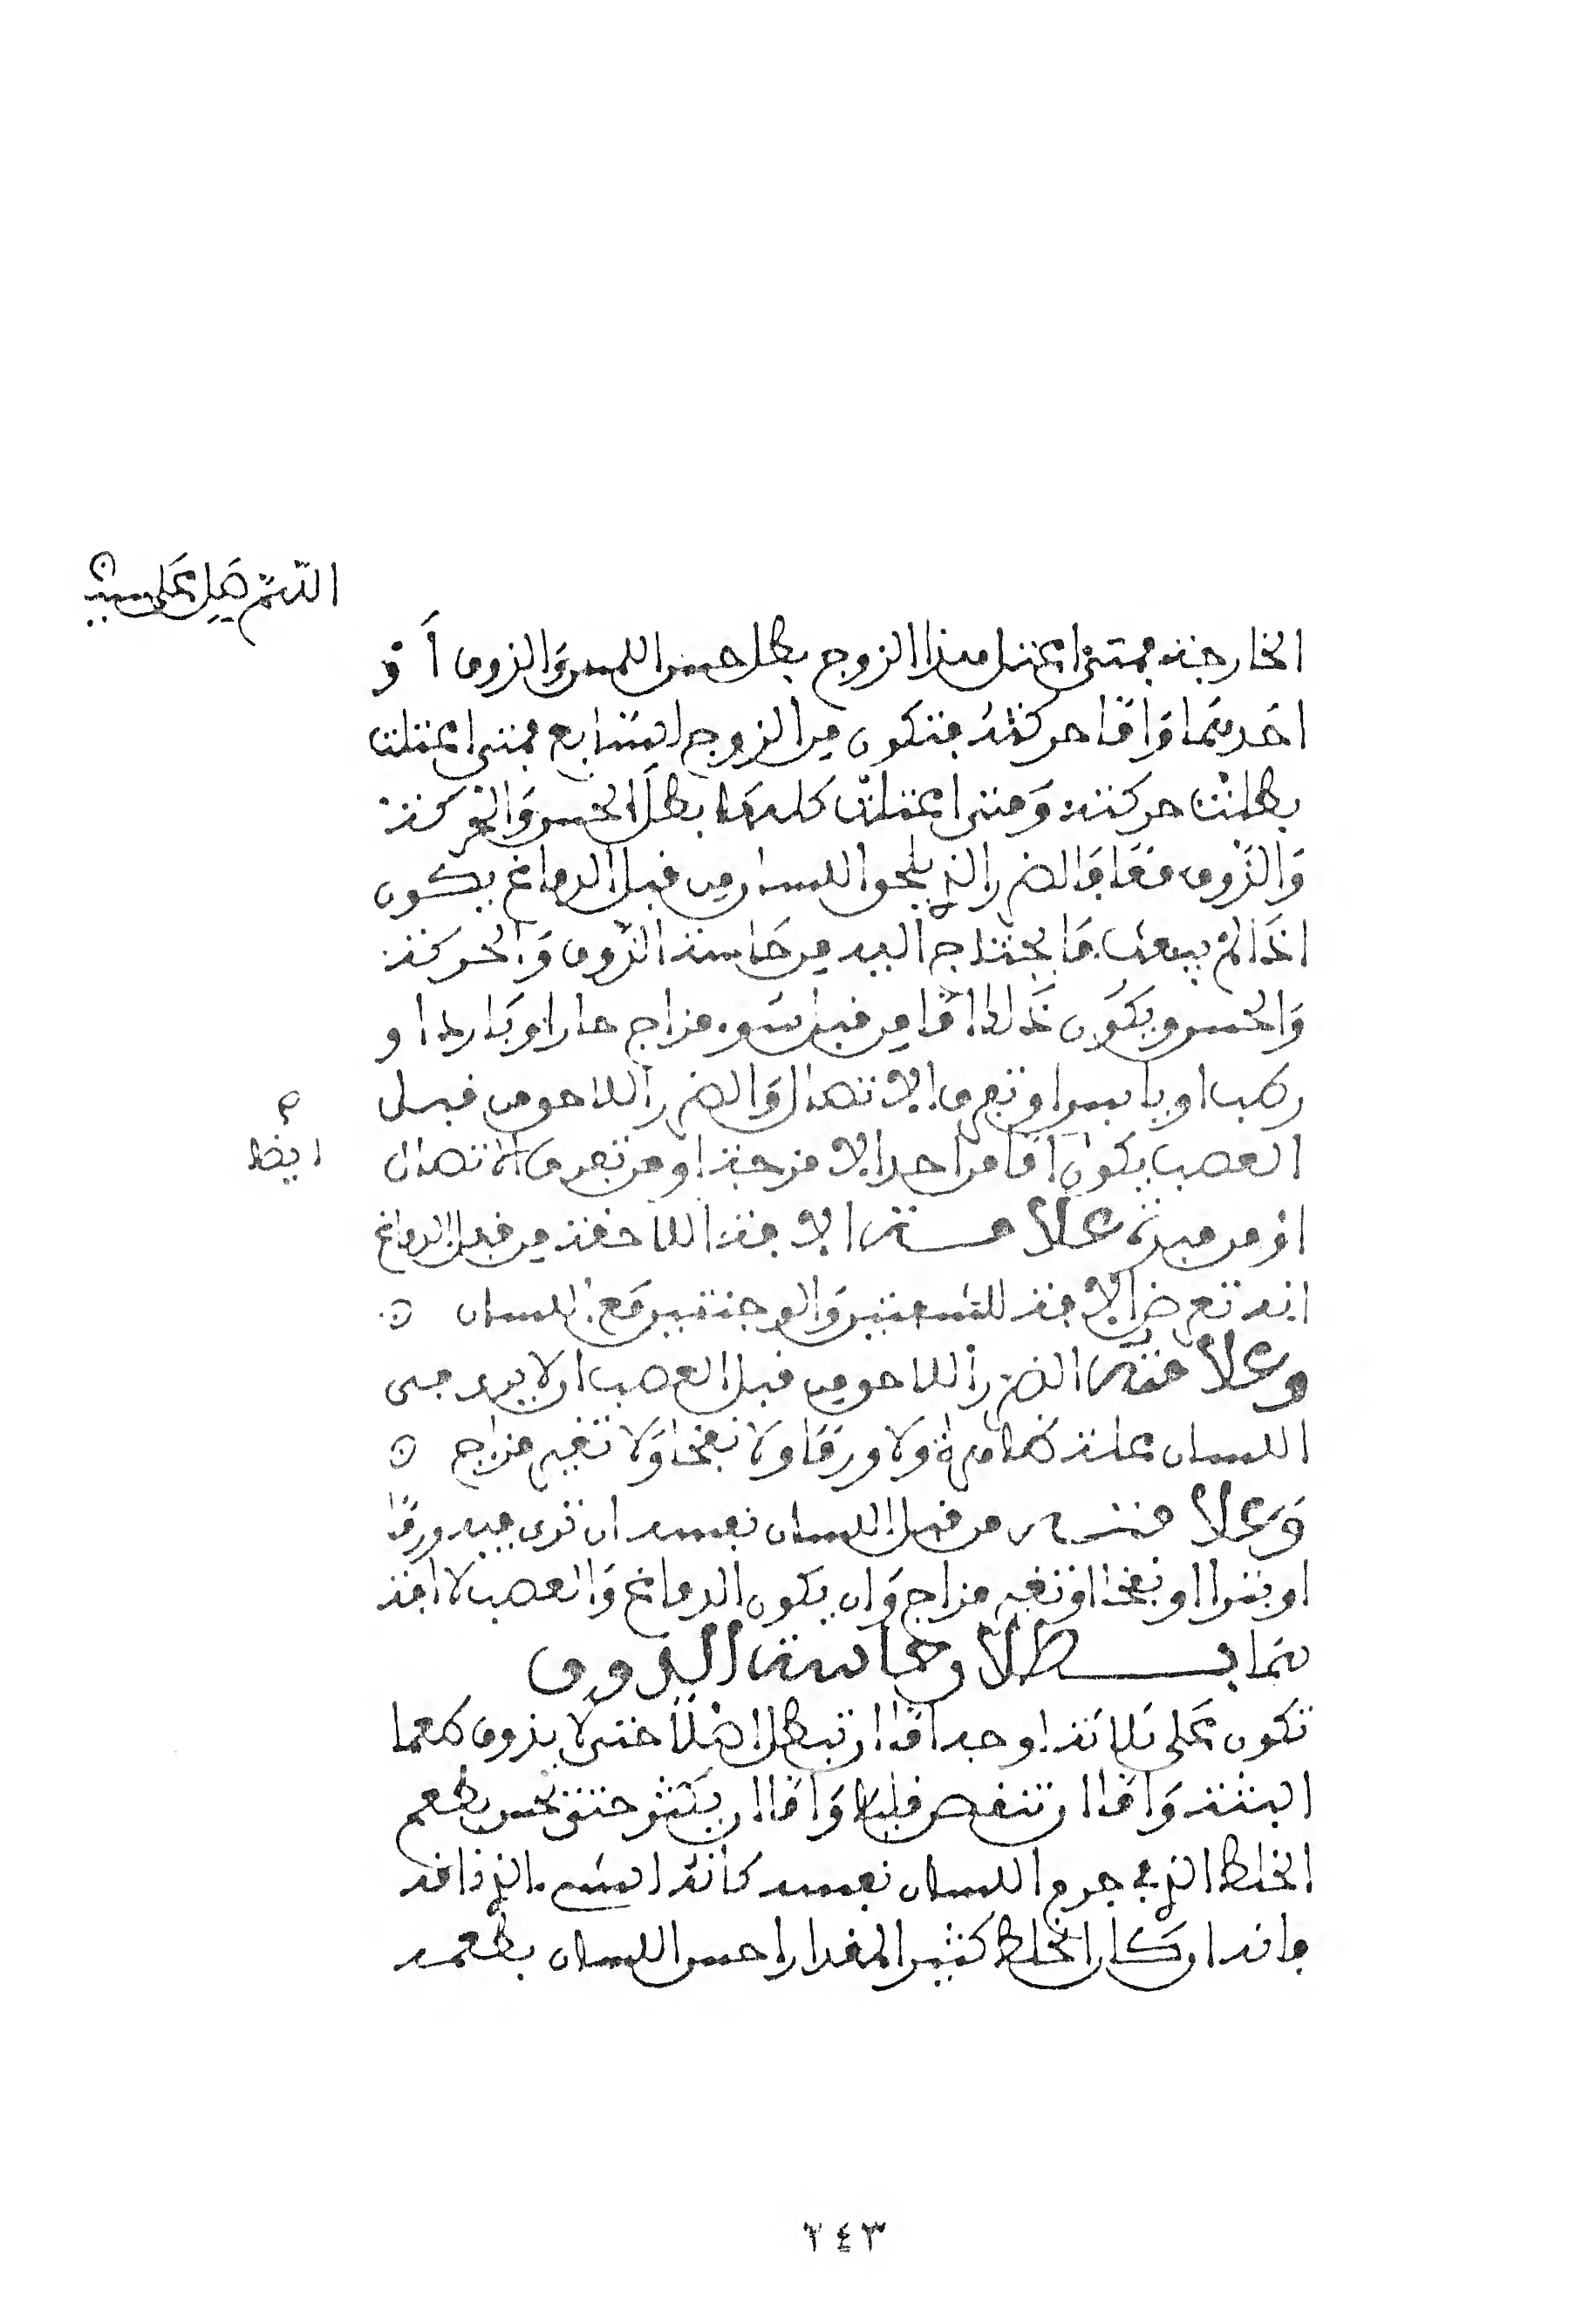 اللهم صل على سيدنا
الخارجة فمتى اعتل هذا الزوج بطل حس اللمس والذوق أو
احدهما واما حركته فتكون من الزوج السابع فمتى اعتلت
بطلت حركته ومتى اعتلت كلها بطل الحس والحركة
والذوق معا والضرر الذي يلحق اللسان من قبل الدماغ يكون
اذا لم يبعث ما يحتاج اليه من حاسة الذوق والحركة
والحس ويكون ذلك اما من قبل سوء مزاج حارا او باردا او
رطبا او يابسا او تفرق الاتصال والضرر اللاحق من قبل
العصب يكون اما من احد الامزجة او من تفرق الاتصال
ايضا
او من علامة الافة اللاحقة من قبل الدماغ
انه تعرض الافة للشفتين والوجنتين مع اللسان
وعلامة الضرر اللاحق من قبل العصب ان لا يرى في
اللسان علة ظاهرة ولا ورما ولا نفخا ولا تغير مزاج
وعلامته من قبل اللسان نفسه ان ترى فيه ورما
او بثرا او نفخا او تغير مزاج وان يكون الدماغ والعصب لا افة
بهما بطلان حاسة الذوق
تكون على ثلاثة اوجه اما ان تبطل اصلا حتى لا يذوق طعما
البتة واما ان تنقص قليلا واما ان يكثر حتى يحس بطعم
الخلط الذي في جرم اللسان نفسه كانه الشيء الذي ذاقه
فانه ان كان الخلط كثير المقدار احس اللسان بطعمه
٢٤٣